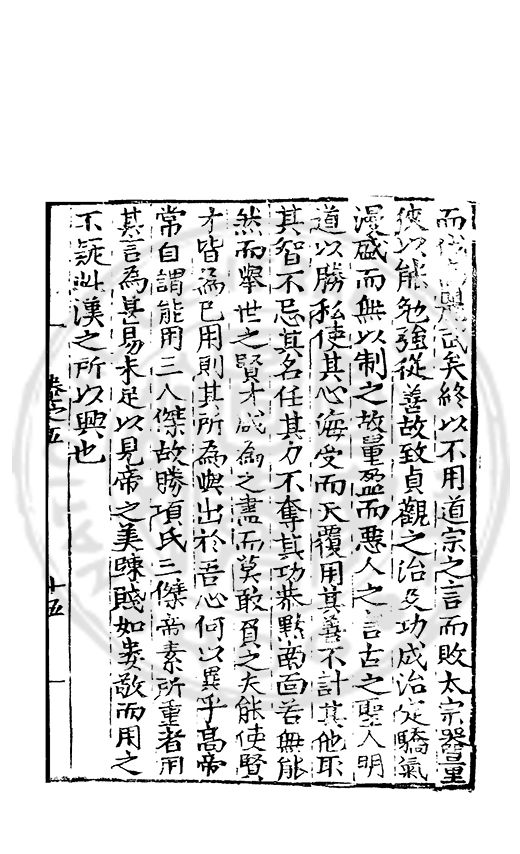 而矣終以不用道宗之言而敗太宗器量
狹以能勉強從善故致貞觀之治及功成治定驕氣
漫盛而無以制之故量盈而惡人之言古之聖人明
道以勝私使其心海受而天覆用其善不計其他取
其智不忌其名任其力不奪其功恭默南面若無能
然而舉世之賢才咸為之盡而莫敢負之夫能使賢
才皆為已用則其所為與出於吾心何以異乎高帝
常自謂能用三人傑故勝項氏三傑帝素所重者用
其言為甚易未足以見帝之美踈賤如婁敬而用之
不疑此漢之所以興也
卷之五
十五